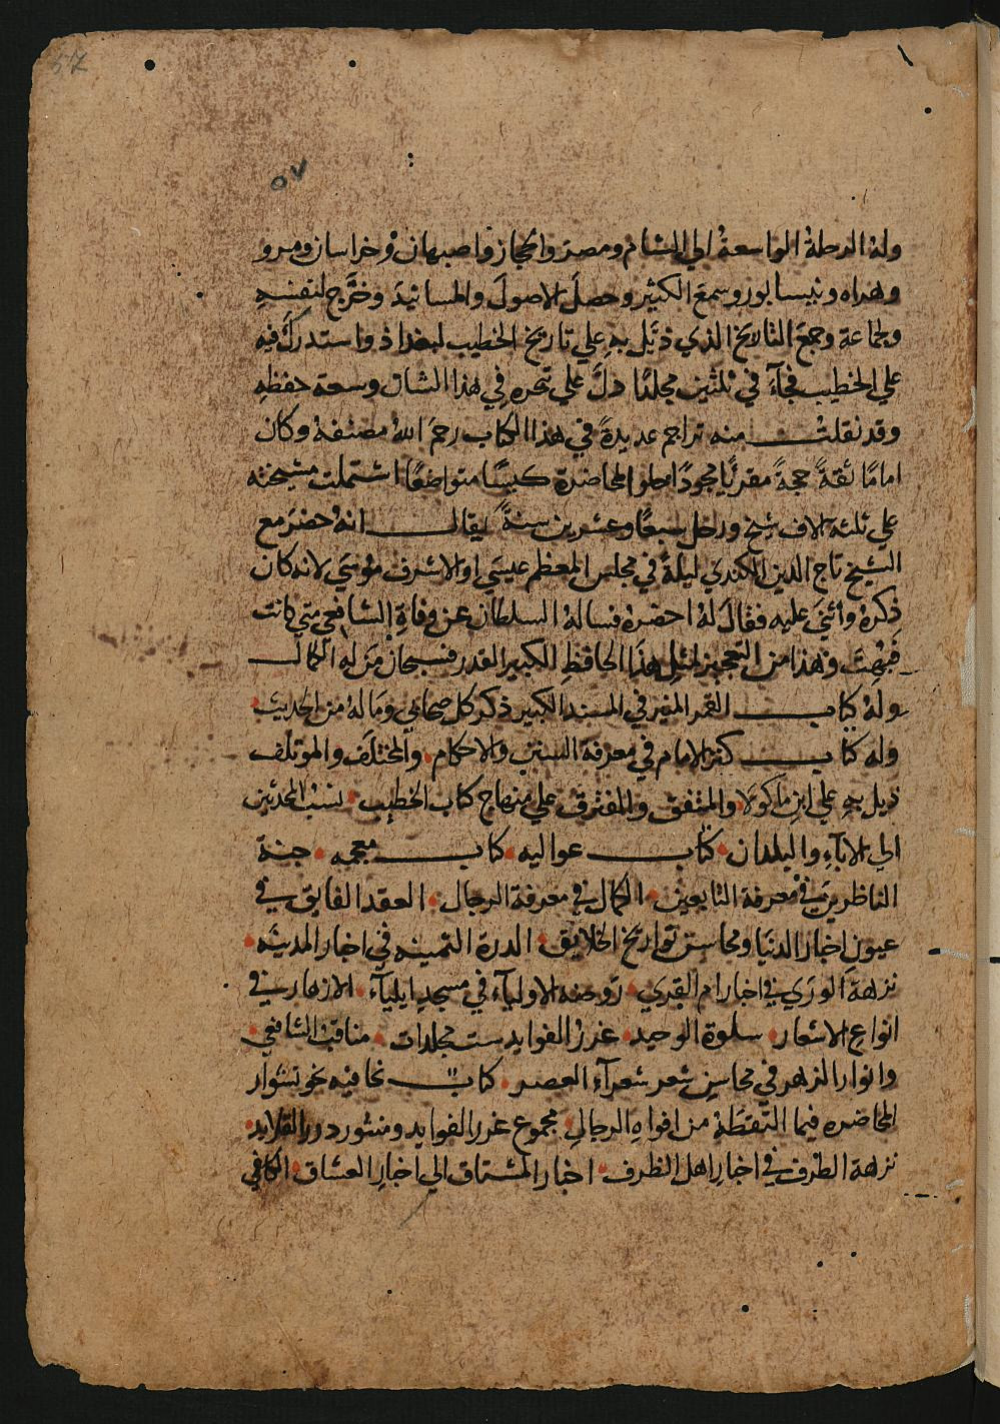 57
٥٧
وله الرحلة الواسعة الي الشام ومصر والحجاز واصبهان وخراسان ومرو
وهراه ونيسابور وسمع الكثير وحصل الاصول والمسانيد وخرّج لنفسه
ولجماعة وجمع التاريخ الذي ذيّل به علي تاريخ الخطيب لبغداذ واستدرك فيه
علي الخطيب فجآء في ثلثين مجلدًا دلّ علي تبحره في هذا الشان وسعة حفظه
وقد نقلت منه تراجم عديدة في هذا الكتاب رحم الله مصنفه وكان
امامًا ثقةً حجةً مقريًا مجودًا حلو المحاضرة كيسًا متواضعًا اشتملت مشيخته
علي ثلثه الاف شيخ ورحل سبعًا وعشرين سنةً يقال انه حضر مع
الشيخ تاج الدين الكندي ليلةً في مجلس المعظم عيسي او الاشرف موسي لانه كان
ذكره واثني عليه فقال له احضره فساله السلطان عن وفاة الشافعي متي كانت
فبُهِتَ وهذا من التعجيز لمثل هذا الحافظ الكبير القدر فسبحان من له الكمال
وله كتاب القمر المنير في المسند الكبير ذكر كل صحابي وما له من الحديث
وله كتاب كنز الامام في معرفة السنن والاحكام والمختلف والموتلف
ذيل به علي ابن ماكولا والمتفق والمفترق علي منهاج كتاب الخطيب نسب المحدثين
الي الابآء والبلدان كتاب عواليه كتاب معجمه جنة
الناظرين في معرفة التابعين الكمال في معرفة الرجال العقد الفايق في
عيون اخبار الدنيا ومحاسن تواريخ الخلايق الدرة الثمينه في اخبار المدينه
نزهة الوري في اخبار ام القري روضه الاوليآء في مسجد ايليآء الازهار في
انواع الاشعار سلوة الوحيد غرر الفوايد ست مجلدات مناقب الشافعي
وانوار الزهر في محاسن شعر شعرآء العصر كتاب نحا فيه نحو نشوار
المحاضره فيما التقطه من افواه الرجال مجموع غرر الفوايد ومنثور درر القلايد
نزهة الطرف في اخبار اهل الظرف اخبار المشتاق الي اخبار العشاق الكافي